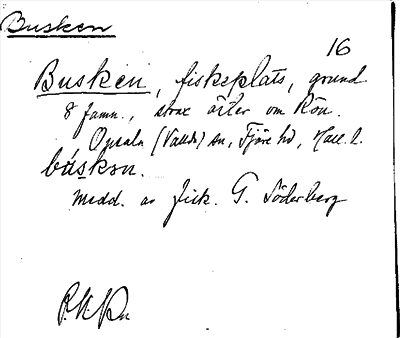 Busken
16
Busken, fiskeplats, grund
8 famn., strax öster om Rön.
Onsala (Vallda) sn, Fjäre hd, Hall. l.
búskən.
Medd. av fisk. G. Söderberg